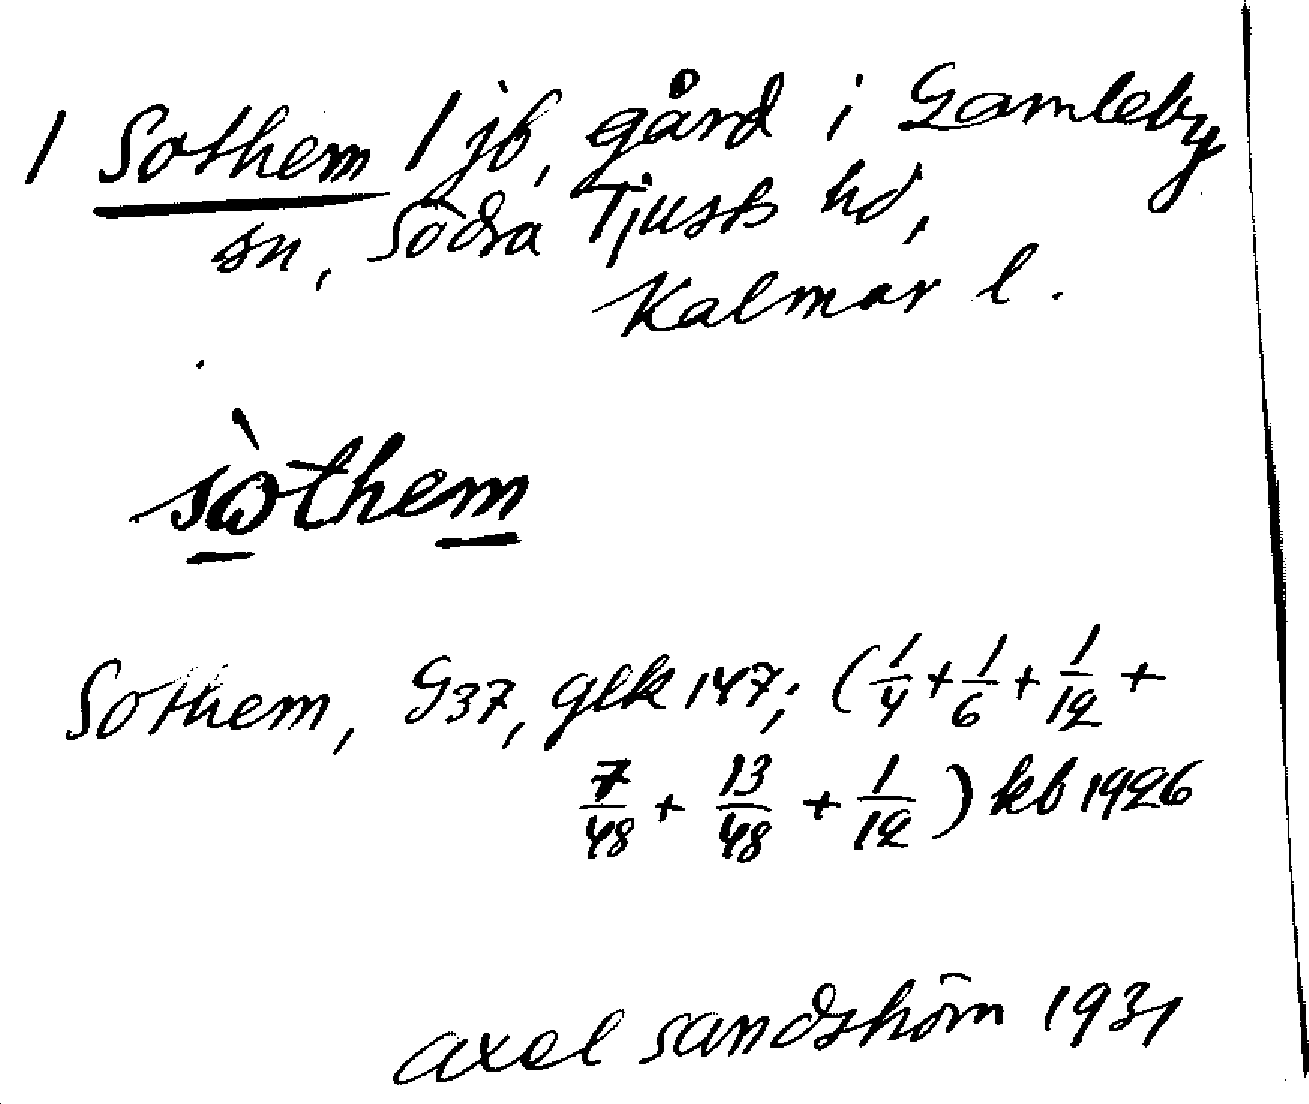 1 Sothem 1 jb, gård i Gamleby
sn, Södra Tjusts hd,
Kalmar l.
sò̱them̱
Sothem, G37, glk 147; (1/4 + 1/6 + 1/12 +
7/48 + 13/48 + 1/12) kb 1926
Axel Sandström 1931